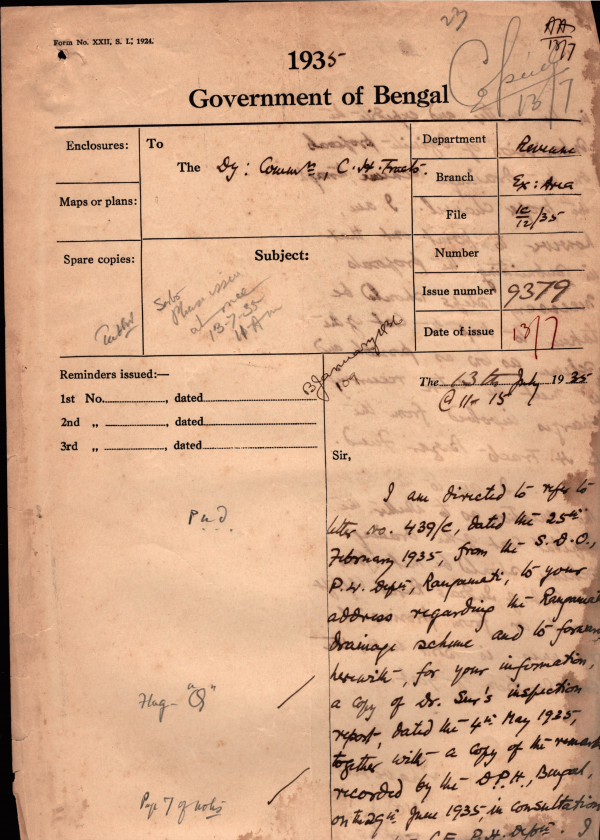 23
AA
13/7
Form No. XXII, S. I., 1924.
1935
13/7
Government of Bengal
Enclosures:
Maps or plans:
Spare copies:
To
The Dy: Commr, C. H. Tracts.
Subject:
please issue
at once
13-7-35
11 A.M
Department Revenue
Branch Ex: Area
File
12/35
Number
Issue number 9379
Date of issue 13/7
Reminders issued:—
1st No. , dated
2nd „ , dated
3rd „ , dated
B January 1936
109
The 13th July 1935
Sir,
I am directed to refer to
letter no. 439/C, dated the 25th
February 1935, from the S. D. O.,
P. W. Deptt, Rangamati, to your
address regarding the Rangamati
drainage scheme and to forward
herewith, for your information,
a copy of Dr. Sur's inspection
report, dated the 4th May 1935,
together with a copy of the remarks
recorded by the D.P.H., Bengal,
on the 29th June 1935, in consultation
P. H. Deptt. I
Flag- "Q"
Page 7 of notes